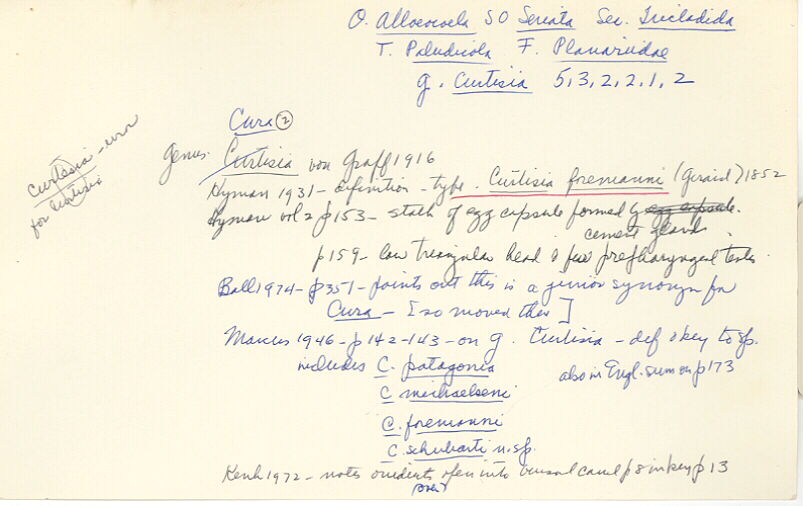 O. Alloeocoela SO Seriata Sec. Tricladida
T. Paludicola F. Planariidae
g. Curtisia 5,3,2,2,1,2
Cura ②
Genus. Curtisia von Graff 1916
Curtesia - error
for Curtisia
Hyman 1931 - definition - type. Curtisia foremanni (Girard) 1852
Hyman vol 2 p153 - stalk of egg capsule formed by egg capsule.
cement glands
p159 - low triangular head & few prepharyngeal testes
Ball 1974 - p351 - points out this is a junior synonym for
Cura - [so moved there]
Marcus 1946 - p142-143 - on g. Curtisia - def & key to sp.
includes C. patagonia also in Engl. sum on p173
C michaelseni
C. foremanni
C. schubarti n.sp.
Kenk 1972 - notes oviducts open into bursal canal p8 in key p13